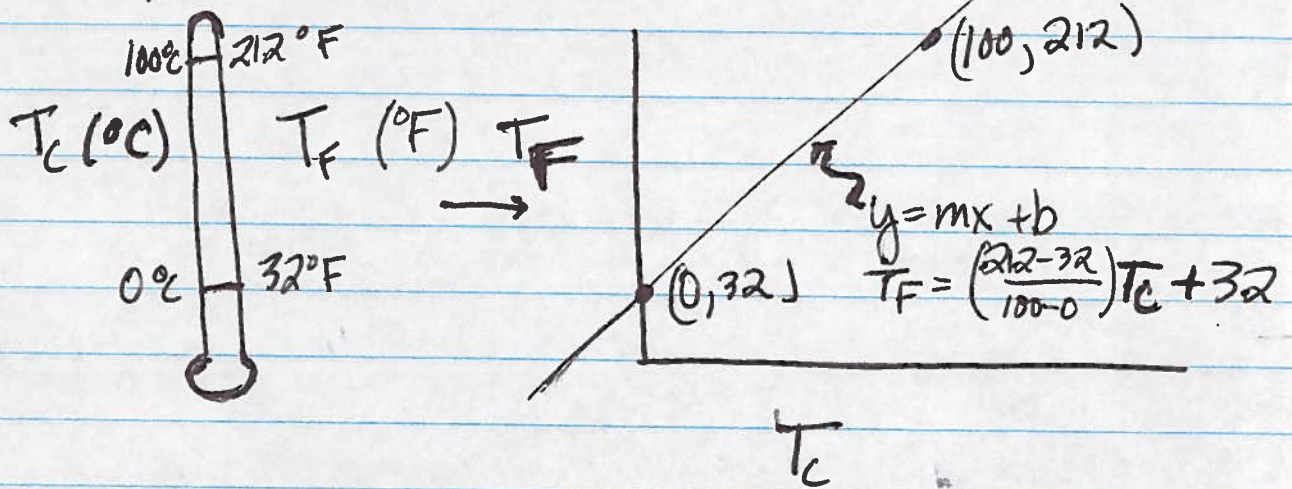 100°C 212°F
T_C (°C) T_F (°F) T_F
0°C 32°F
(100, 212)
y = mx + b
(0, 32) T_F = (212-32/100-0) T_C + 32
T_C